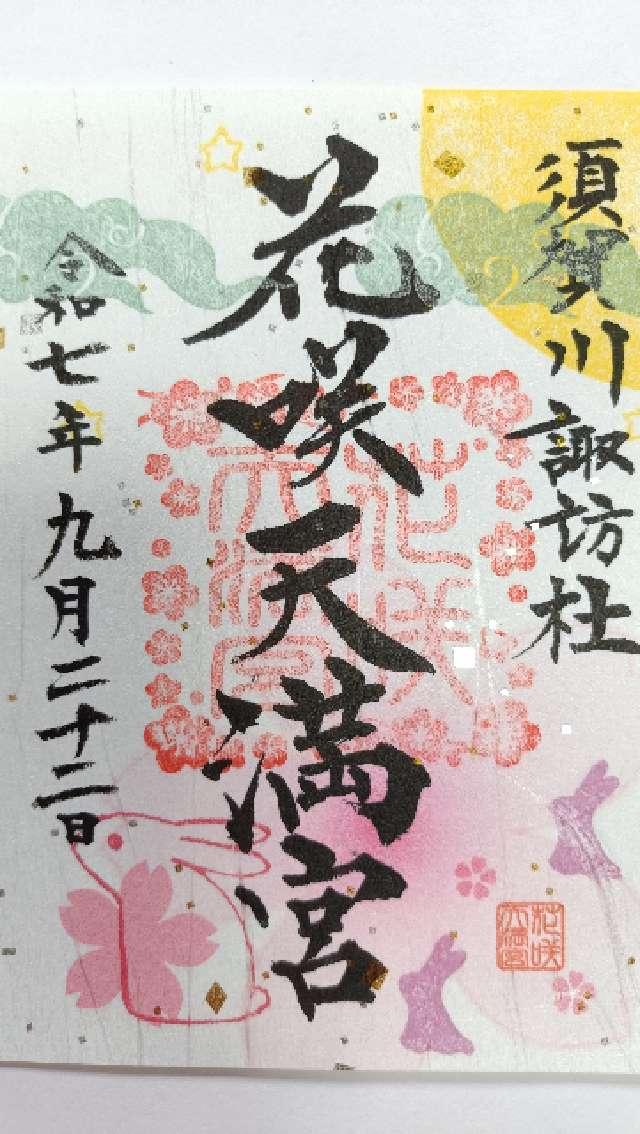 須賀川諏訪社
花咲天満宮
花咲
天満宮
令和七年九月二十二日
花咲
天満宮